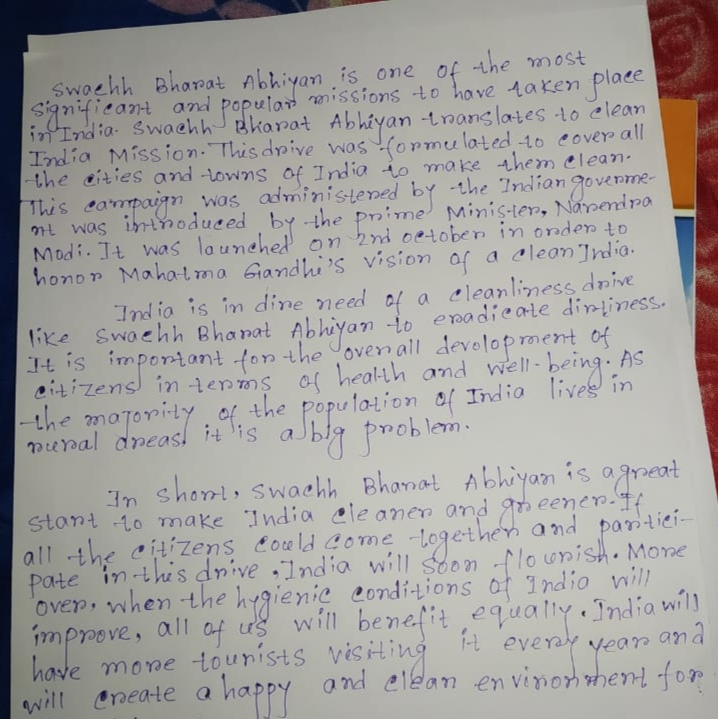 Swachh Bharat Abhiyan is one of the most
significant and popular missions to have taken place
in India. Swachh Bharat Abhiyan translates to clean
India Mission. This drive was formulated to cover all
the cities and towns of India to make them clean.
This campaign was administered by the Indian governme-
nt was introduced by the prime Minister, Narendra
Modi. It was launched on 2nd october in order to
honor Mahatma Gandhi's vision of a clean India.
India is in dire need of a cleanliness drive
like Swachh Bharat Abhiyan to eradicate dirtiness.
It is important for the overall devolopment of
citizens in terms of health and well-being. As
the majority of the population of India lives in
rural areas, it is a big problem.
In short, Swachh Bharat Abhiyan is a great
start to make India cleaner and greener. If
all the citizens could come together and partici-
pate in this drive, India will soon flourish. More
over, when the hygienic conditions of India will
improve, all of us will benefit equally. India will
have more tourists visiting it every year and
will create a happy and clean environment for